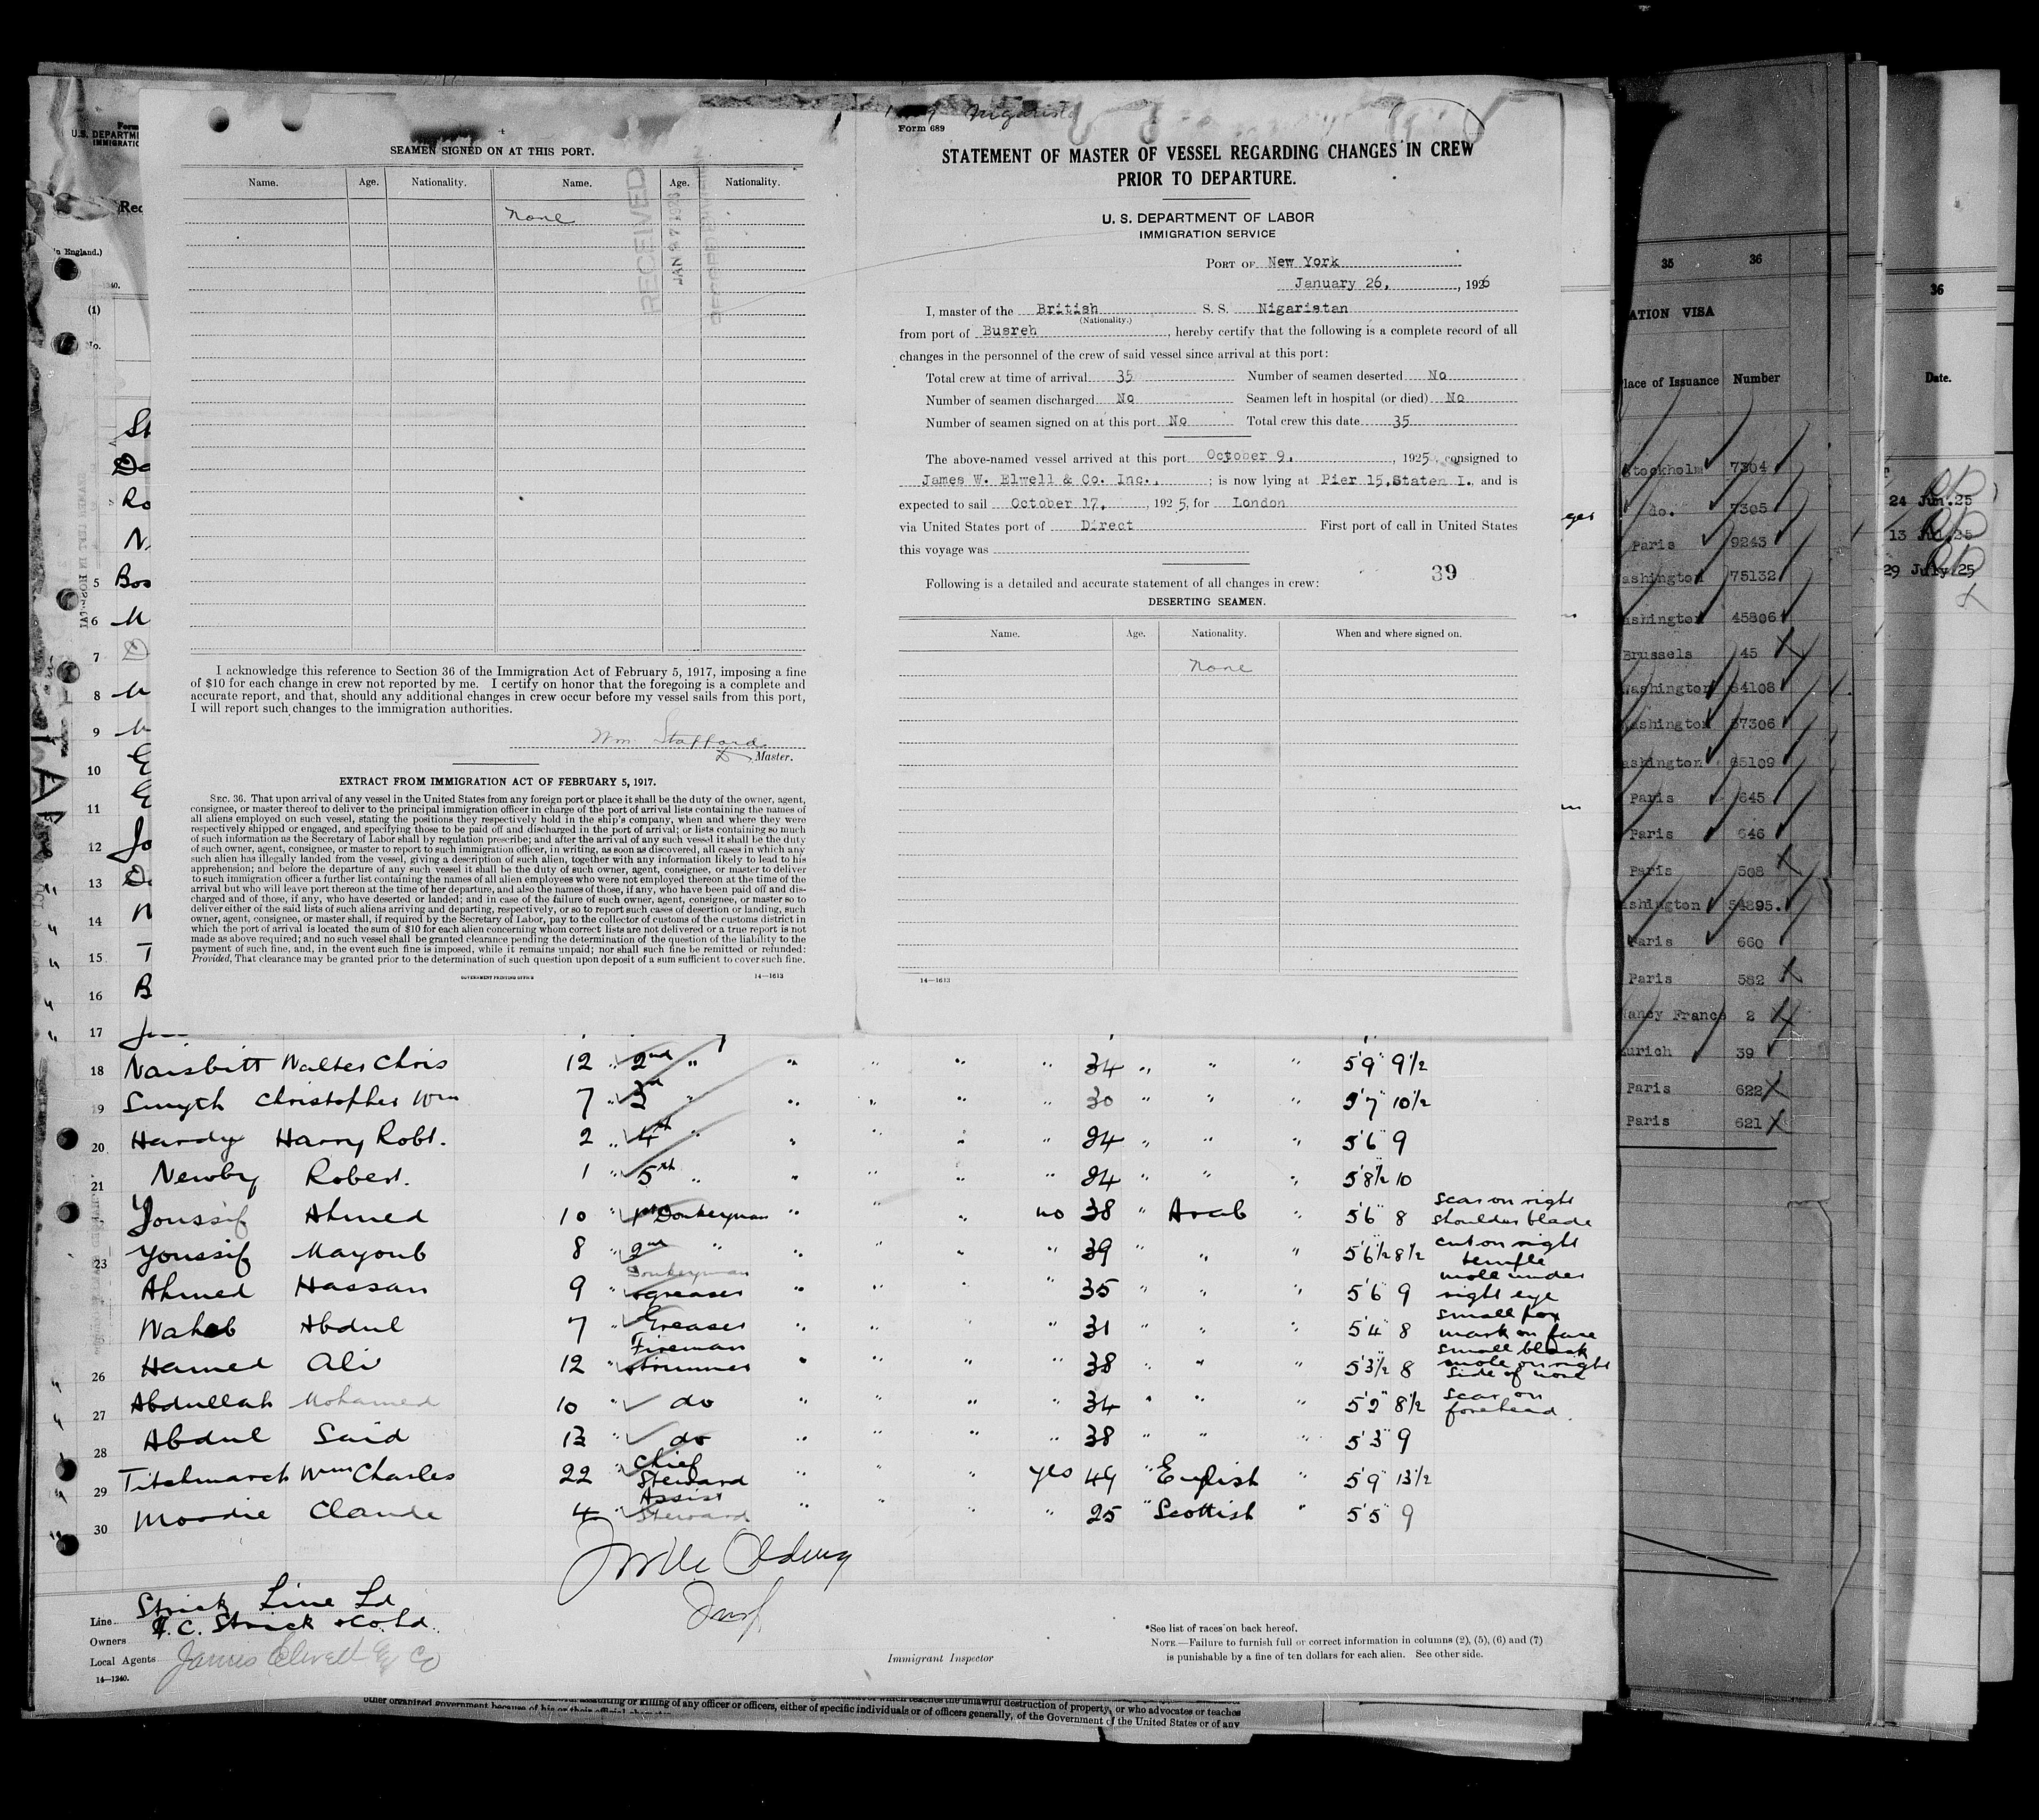 Form 689
SEAMEN SIGNED ON AT THIS PORT.
Name. Age. Nationality. Name. Age. Nationality.
None
RECEIVED
I acknowledge this reference to Section 36 of the Immigration Act of February 5, 1917, imposing a fine
of $10 for each change in crew not reported by me. I certify on honor that the foregoing is a complete and
accurate report, and that, should any additional changes in crew occur before my vessel sails from this port,
I will report such changes to the immigration authorities.
Wm. Stafford
Master.
EXTRACT FROM IMMIGRATION ACT OF FEBRUARY 5, 1917.
SEC. 36. That upon arrival of any vessel in the United States from any foreign port or place it shall be the duty of the owner, agent,
consignee, or master thereof to deliver to the principal immigration officer in charge of the port of arrival lists containing the names of
all aliens employed on such vessel, stating the positions they respectively hold in the ship's company, when and where they were
respectively shipped or engaged, and specifying those to be paid off and discharged in the port of arrival; or lists containing so much
of such information as the Secretary of Labor shall by regulation prescribe; and after the arrival of any such vessel it shall be the duty
of such owner, agent, consignee, or master to report to such immigration officer, in writing, as soon as discovered, all cases in which any
such alien has illegally landed from the vessel, giving a description of such alien, together with any information likely to lead to his
apprehension; and before the departure of any such vessel it shall be the duty of such owner, agent, consignee, or master to deliver
to such immigration officer a further list containing the names of all alien employees who were not employed thereon at the time of the
arrival but who will leave port thereon at the time of her departure, and also the names of those, if any, who have been paid off and dis-
charged and of those, if any, who have deserted or landed; and in case of the failure of such owner, agent, consignee, or master so to
deliver either of the said lists of such aliens arriving and departing, respectively, or so to report such cases of desertion or landing, such
owner, agent, consignee, or master shall, if required by the Secretary of Labor, pay to the collector of customs of the customs district in
which the port of arrival is located the sum of $10 for each alien concerning whom correct lists are not delivered or a true report is not
made as above required; and no such vessel shall be granted clearance pending the determination of the question of the liability to the
payment of such fine, and, in the event such fine is imposed, while it remains unpaid; nor shall such fine be remitted or refunded:
Provided, That clearance may be granted prior to the determination of such question upon deposit of a sum sufficient to cover such fine.
GOVERNMENT PRINTING OFFICE 14—1613
STATEMENT OF MASTER OF VESSEL REGARDING CHANGES IN CREW
PRIOR TO DEPARTURE.
U. S. DEPARTMENT OF LABOR
IMMIGRATION SERVICE
PORT OF New York
January 26, , 1926
I, master of the British S. S. Nigaristan
(Nationality.)
from port of Busreh , hereby certify that the following is a complete record of all
changes in the personnel of the crew of said vessel since arrival at this port:
Total crew at time of arrival 35 Number of seamen deserted No
Number of seamen discharged No Seamen left in hospital (or died) No
Number of seamen signed on at this port No Total crew this date 35
The above-named vessel arrived at this port October 9, , 1925 consigned to
James W. Elwell & Co. Inc., ; is now lying at Pier 15, Staten I. and is
expected to sail October 17, , 1925, for London
via United States port of Direct First port of call in United States
this voyage was
39
Following is a detailed and accurate statement of all changes in crew:
DESERTING SEAMEN.
Name. Age. Nationality. When and where signed on.
None
14—1613
18 Naisbitt Walter Chris 12 " 2nd " " " " " 34 " " " 5'9" 9½
19 Smyth Christopher Wm 7 " 3rd " " " " " 30 " " " 5'7" 10½
20 Hardy Harry Robt. 2 " 4th " " " " " 24 " " " 5'6" 9
21 Newby Robert. 1 " 5th " " " " " 24 " " " 5'8½ 10
Youssif Ahmed 10 " 1st Donkeyman " " " no 38 " Arab " 5'6" 8 scar on right shoulder blade
23 Youssif Mayoub 8 " 2nd " " " " " 39 " " " 5'6½ 8½ cut on right temple
Ahmed Hassan 9 " Donkeyman greaser " " " " 35 " " " 5'6" 9 mole under right eye
Wahab Abdul 7 " Greaser " " " " 31 " " " 5'4" 8 small pox mark on face
26 Hamed Ali 12 " Fireman trimmer " " " " 38 " " " 5'3½ 8 small black mole on right side of nose
27 Abdullah Mohamed 10 " do " " " " 34 " " " 5'2" 8½ scar on forehead.
28 Abdul Said 13 " do " " " " 38 " " " 5'3" 9
29 Titchmarch Wm Charles 22 " Chief Steward " " " yes 49 " English " 5'9" 13½
30 Moodie Claude 4 " Assist Steward " " " " 25 " Scottish " 5'5" 9
Line Strick Line Ld
Owners F. C. Strick & Co. Ld.
Local Agents James Elwell & Co
14—1240.
Immigrant Inspector
*See list of races on back hereof.
NOTE.—Failure to furnish full or correct information in columns (2), (5), (6) and (7)
is punishable by a fine of ten dollars for each alien. See other side.
killing of any officer or officers, either of specific individuals or of officers generally, of the Government of the United States or of any
35 36
ATION VISA
Place of Issuance Number
Stockholm 7304
do. 7305
Paris 9243
Washington 75132
Washington 45806
Brussels 45
Washington 64108
Washington 67306
Washington 65109
Paris 645
Paris 646
Paris 508
Washington 54895.
Paris 660
Paris 582
Nancy France 2
Zurich 39
Paris 622
Paris 621
36
Date.
24 Jun.25
13 Jul.25
29 July.25